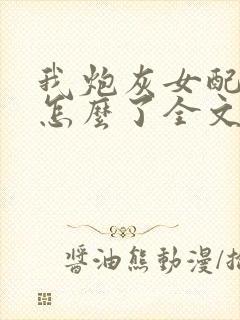 我炮灰女配
怎麼了全文
醬油熊動漫/